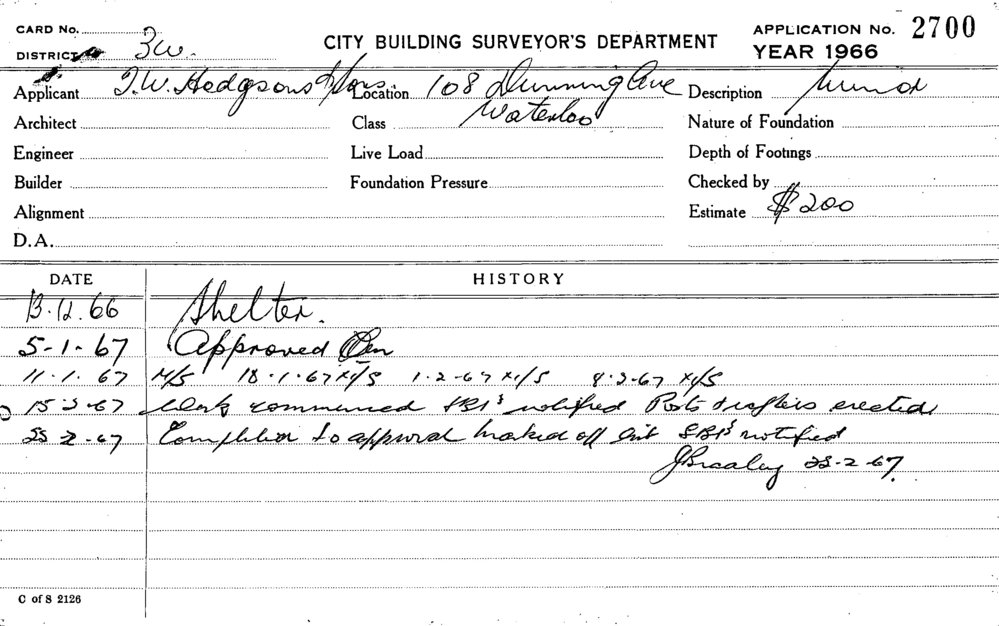 CARD No.
DISTRICT 3w.
CITY BUILDING SURVEYOR'S DEPARTMENT
APPLICATION No. 2700
YEAR 1966
Applicant T.W. Hodgsons & Sons. Location 108 Dunning Ave Description Minor
Architect Class Waterloo Nature of Foundation
Engineer Live Load Depth of Footings
Builder Foundation Pressure Checked by
Alignment Estimate $200
D.A.
DATE HISTORY
13.12.66 Shelter.
5-1-67 Approved
11.1.67 N/S 18.1.67 N/S 1-2-67 N/S 8.2.67 N/S
15-2-67 Work commenced SBI's notified Posts & rafters erected
2-67 Completed to approval marked off list SBI's notified
J Brealey 2-67.
C of S 2126